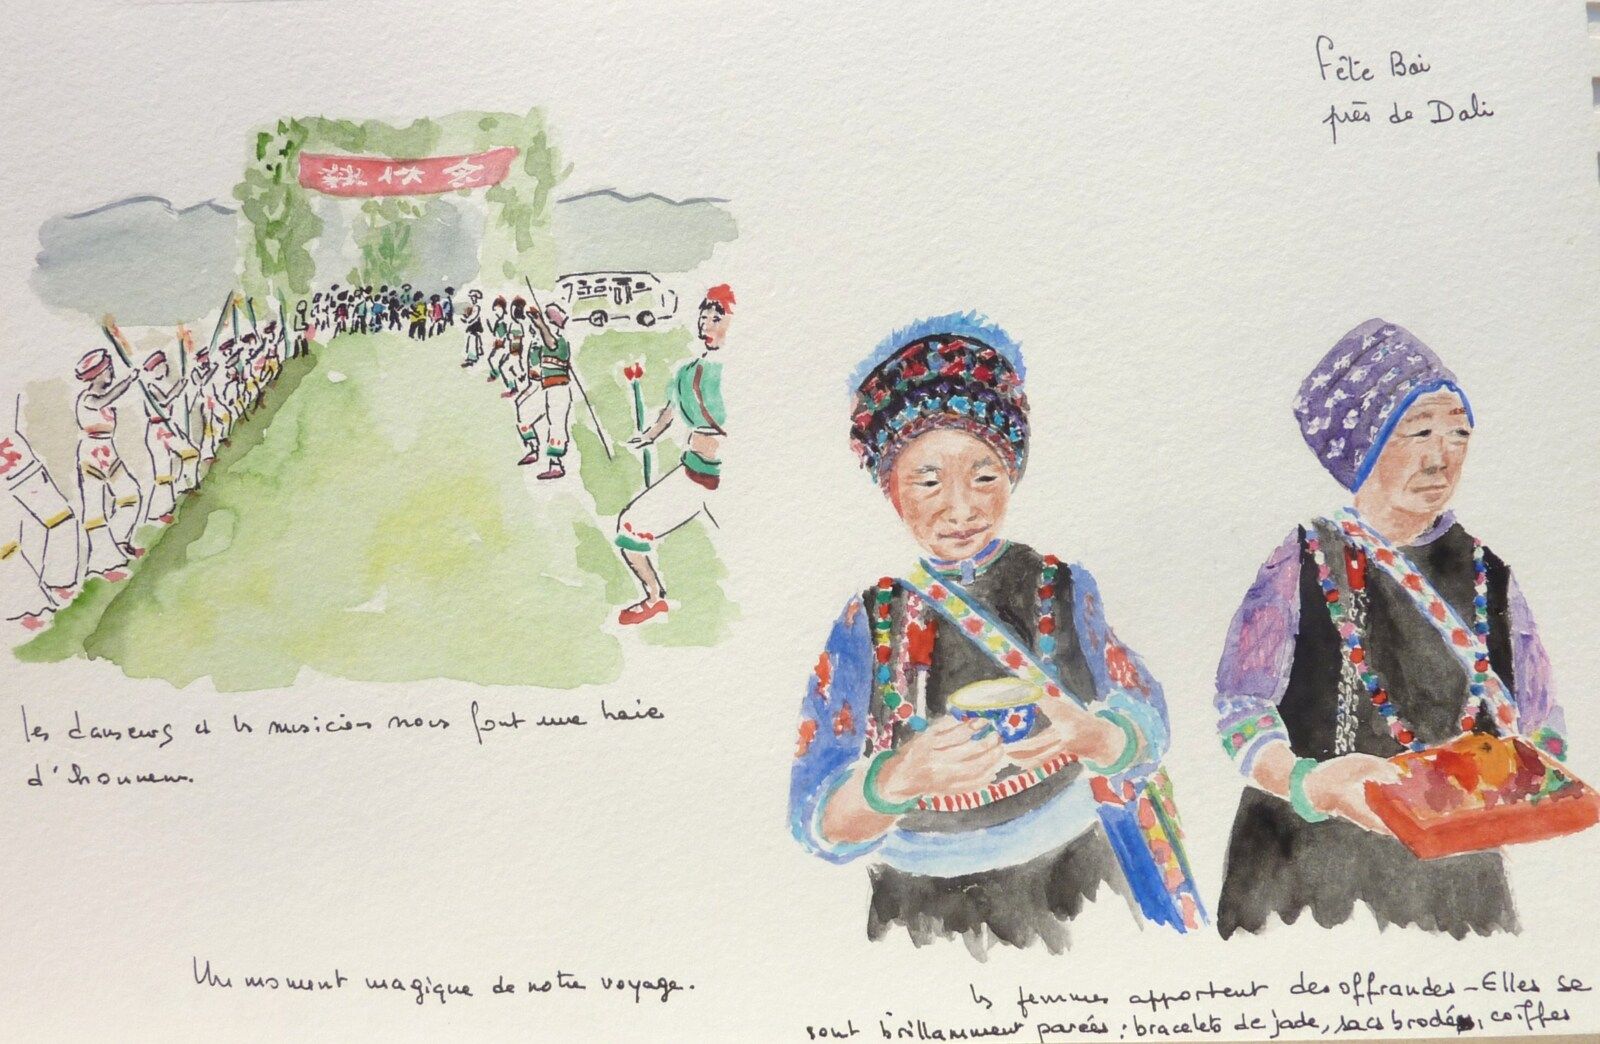 Fête Bai
près de Dali
les danseurs et les musiciens nous font une haie
d'honneur.
Un moment magique de notre voyage.
les femmes apportent des offrandes - Elles se
sont brillamment parées : bracelets de jade, sacs brodés, coiffes